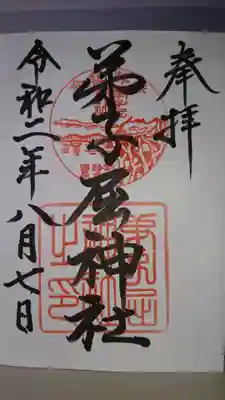 奉拝
弟子屈神社
令和二年八月七日